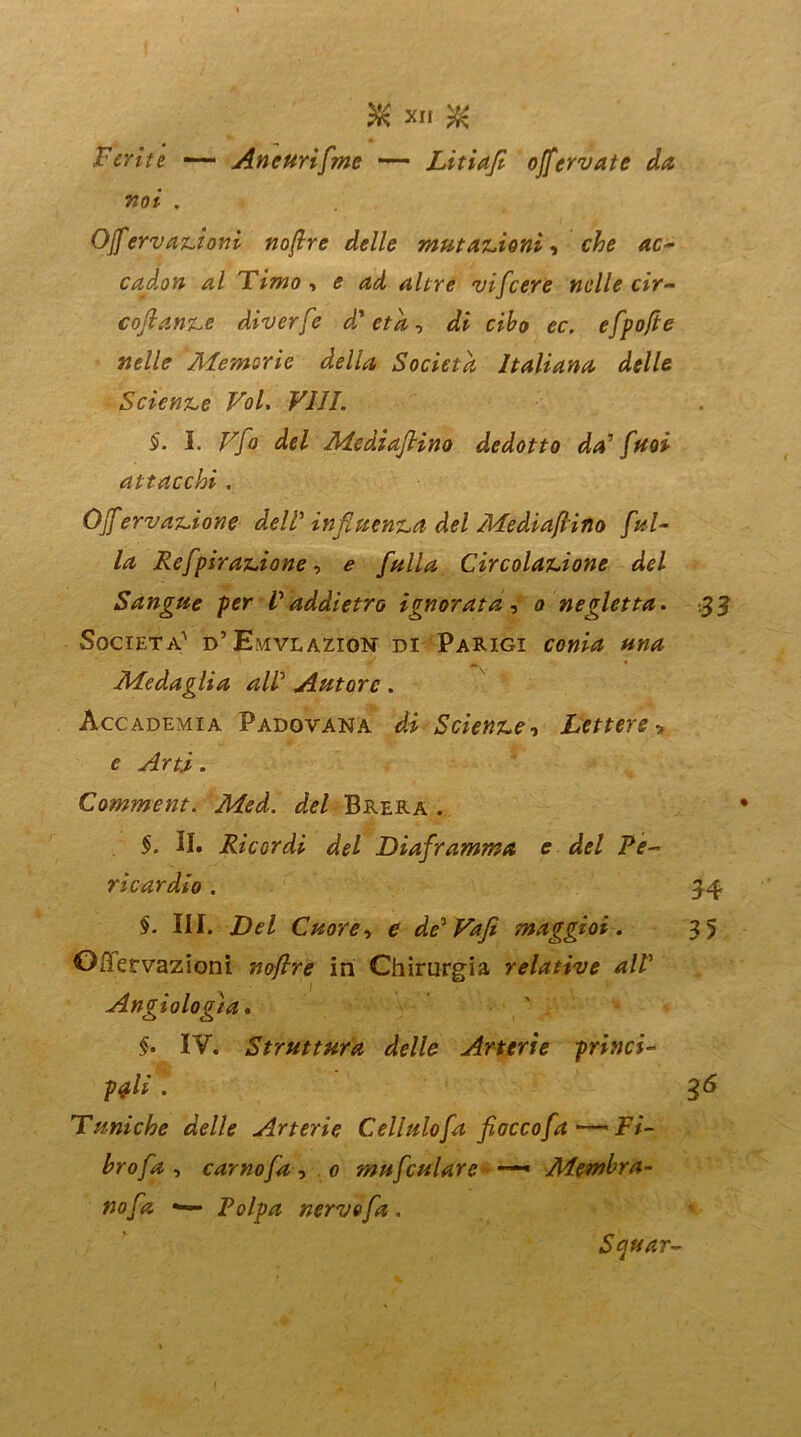 ※ XII ※
Ferite — Aneurifme — Litiafi offervate da
noi .
Offervazioni noftre delle mutazioni, che ac-
cadon al Timo, e ad altre vifcere nelle cir-
coftanze diverfe d'età, di cibo ec. efpofte
nelle Memorie della Società Italiana delle
Scienze Vol. VIII.
§. I. Vfo del Mediaftino dedotto da' fuoi
attacchi .
Offervazione dell' influenza del Mediaftino ful-
la Refpirazione, e fulla Circolazione del
Sangue per l'addietro ignorata, o negletta. 33
SOCIETA' D'EMVLAZION DI PARIGI conia una
Medaglia all' Autore .
ACCADEMIA PADOVANA di Scienze, Lettere,
e Arti .
Comment. Med. del BRERA .
§. II. Ricordi del Diaframma e del Pe-
ricardio . 34
§. III. Del Cuore, e de' Vafi maggioi . 35
Offervazioni noftre in Chirurgia relative all'
Angiologìa .
§. IV. Struttura delle Arterie princi-
pali . 36
Tuniche delle Arterie Cellulofa fioccofa — Fi-
brofa, carnofa, o mufculare — Membra-
nofa — Polpa nervofa .
Squar-